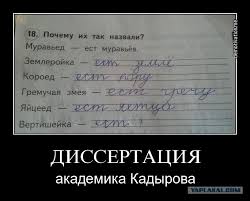 18. Почему их так назвали?
Муравьед — ест муравьёв.
Землеройка — ест землю
Короед — ест кору
Гремучая змея — ест гречу
Яйцеед — ест яйца
Вертишейка — ест
ДИССЕРТАЦИЯ
академика Кадырова
YAPLAKAL.COM